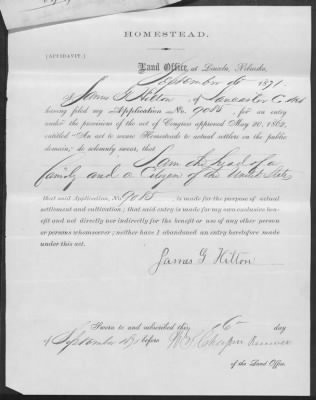 HOMESTEAD.
(AFFIDAVIT.)
Land Office, at Lincoln, Nebraska,
September 6th 1871.
I, James G Hilton, of Lancaster Co Neb
having filed my Application No. 9085, for an entry
under the provisions of the act of Congress approved May 20, 1862,
entitled "An act to secure Homesteads to actual settlers on the public
domain," do solemnly swear, that I am the head of a
family and a Citizen of the United States
that said Application, No. 9085, is made for the purpose of actual
settlement and cultivation; that said entry is made for my own exclusive ben-
efit and not directly nor indirectly for the benefit or use of any other person
or persons whomsoever; neither have I abandoned an entry heretofore made
under this act.
James G Hilton
Sworn to and subscribed this 6 day
of September 1871 before
of the Land Office.